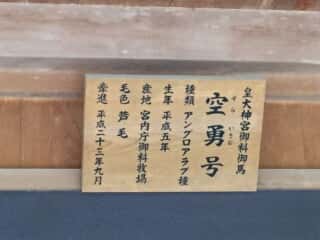 皇大神宮御料御馬
空勇号
そら いさむ
種類 アングロアラブ種
生年 平成五年
産地 宮内庁御料牧場
毛色 芦毛
牽進 平成二十三年九月